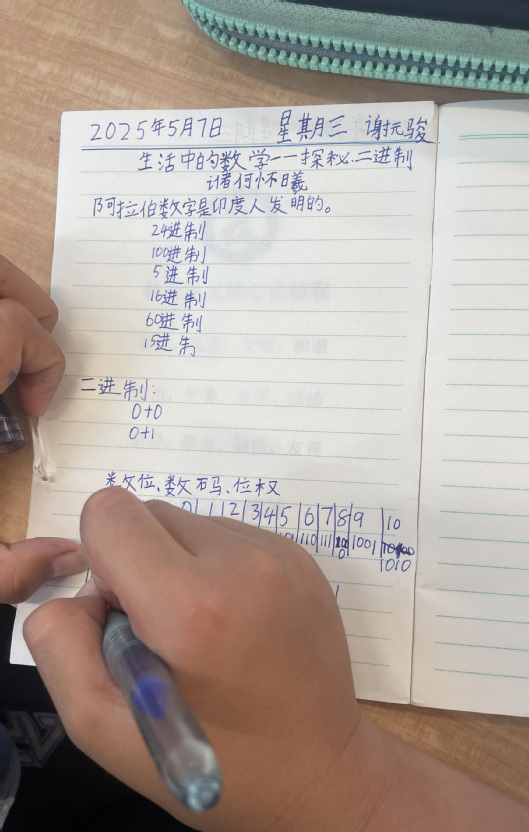 2025年5月7日 星期三 谢抚骏
生活中的数学——探秘二进制
诸何怀曦
阿拉伯数字是印度人发明的。
24进制
100进制
5进制
16进制
60进制
15进制
二进制:
0+0
0+1
数位、数码、位权
0 1 2 3 4 5 6 7 8 9 10
101 110 111 1001
1010